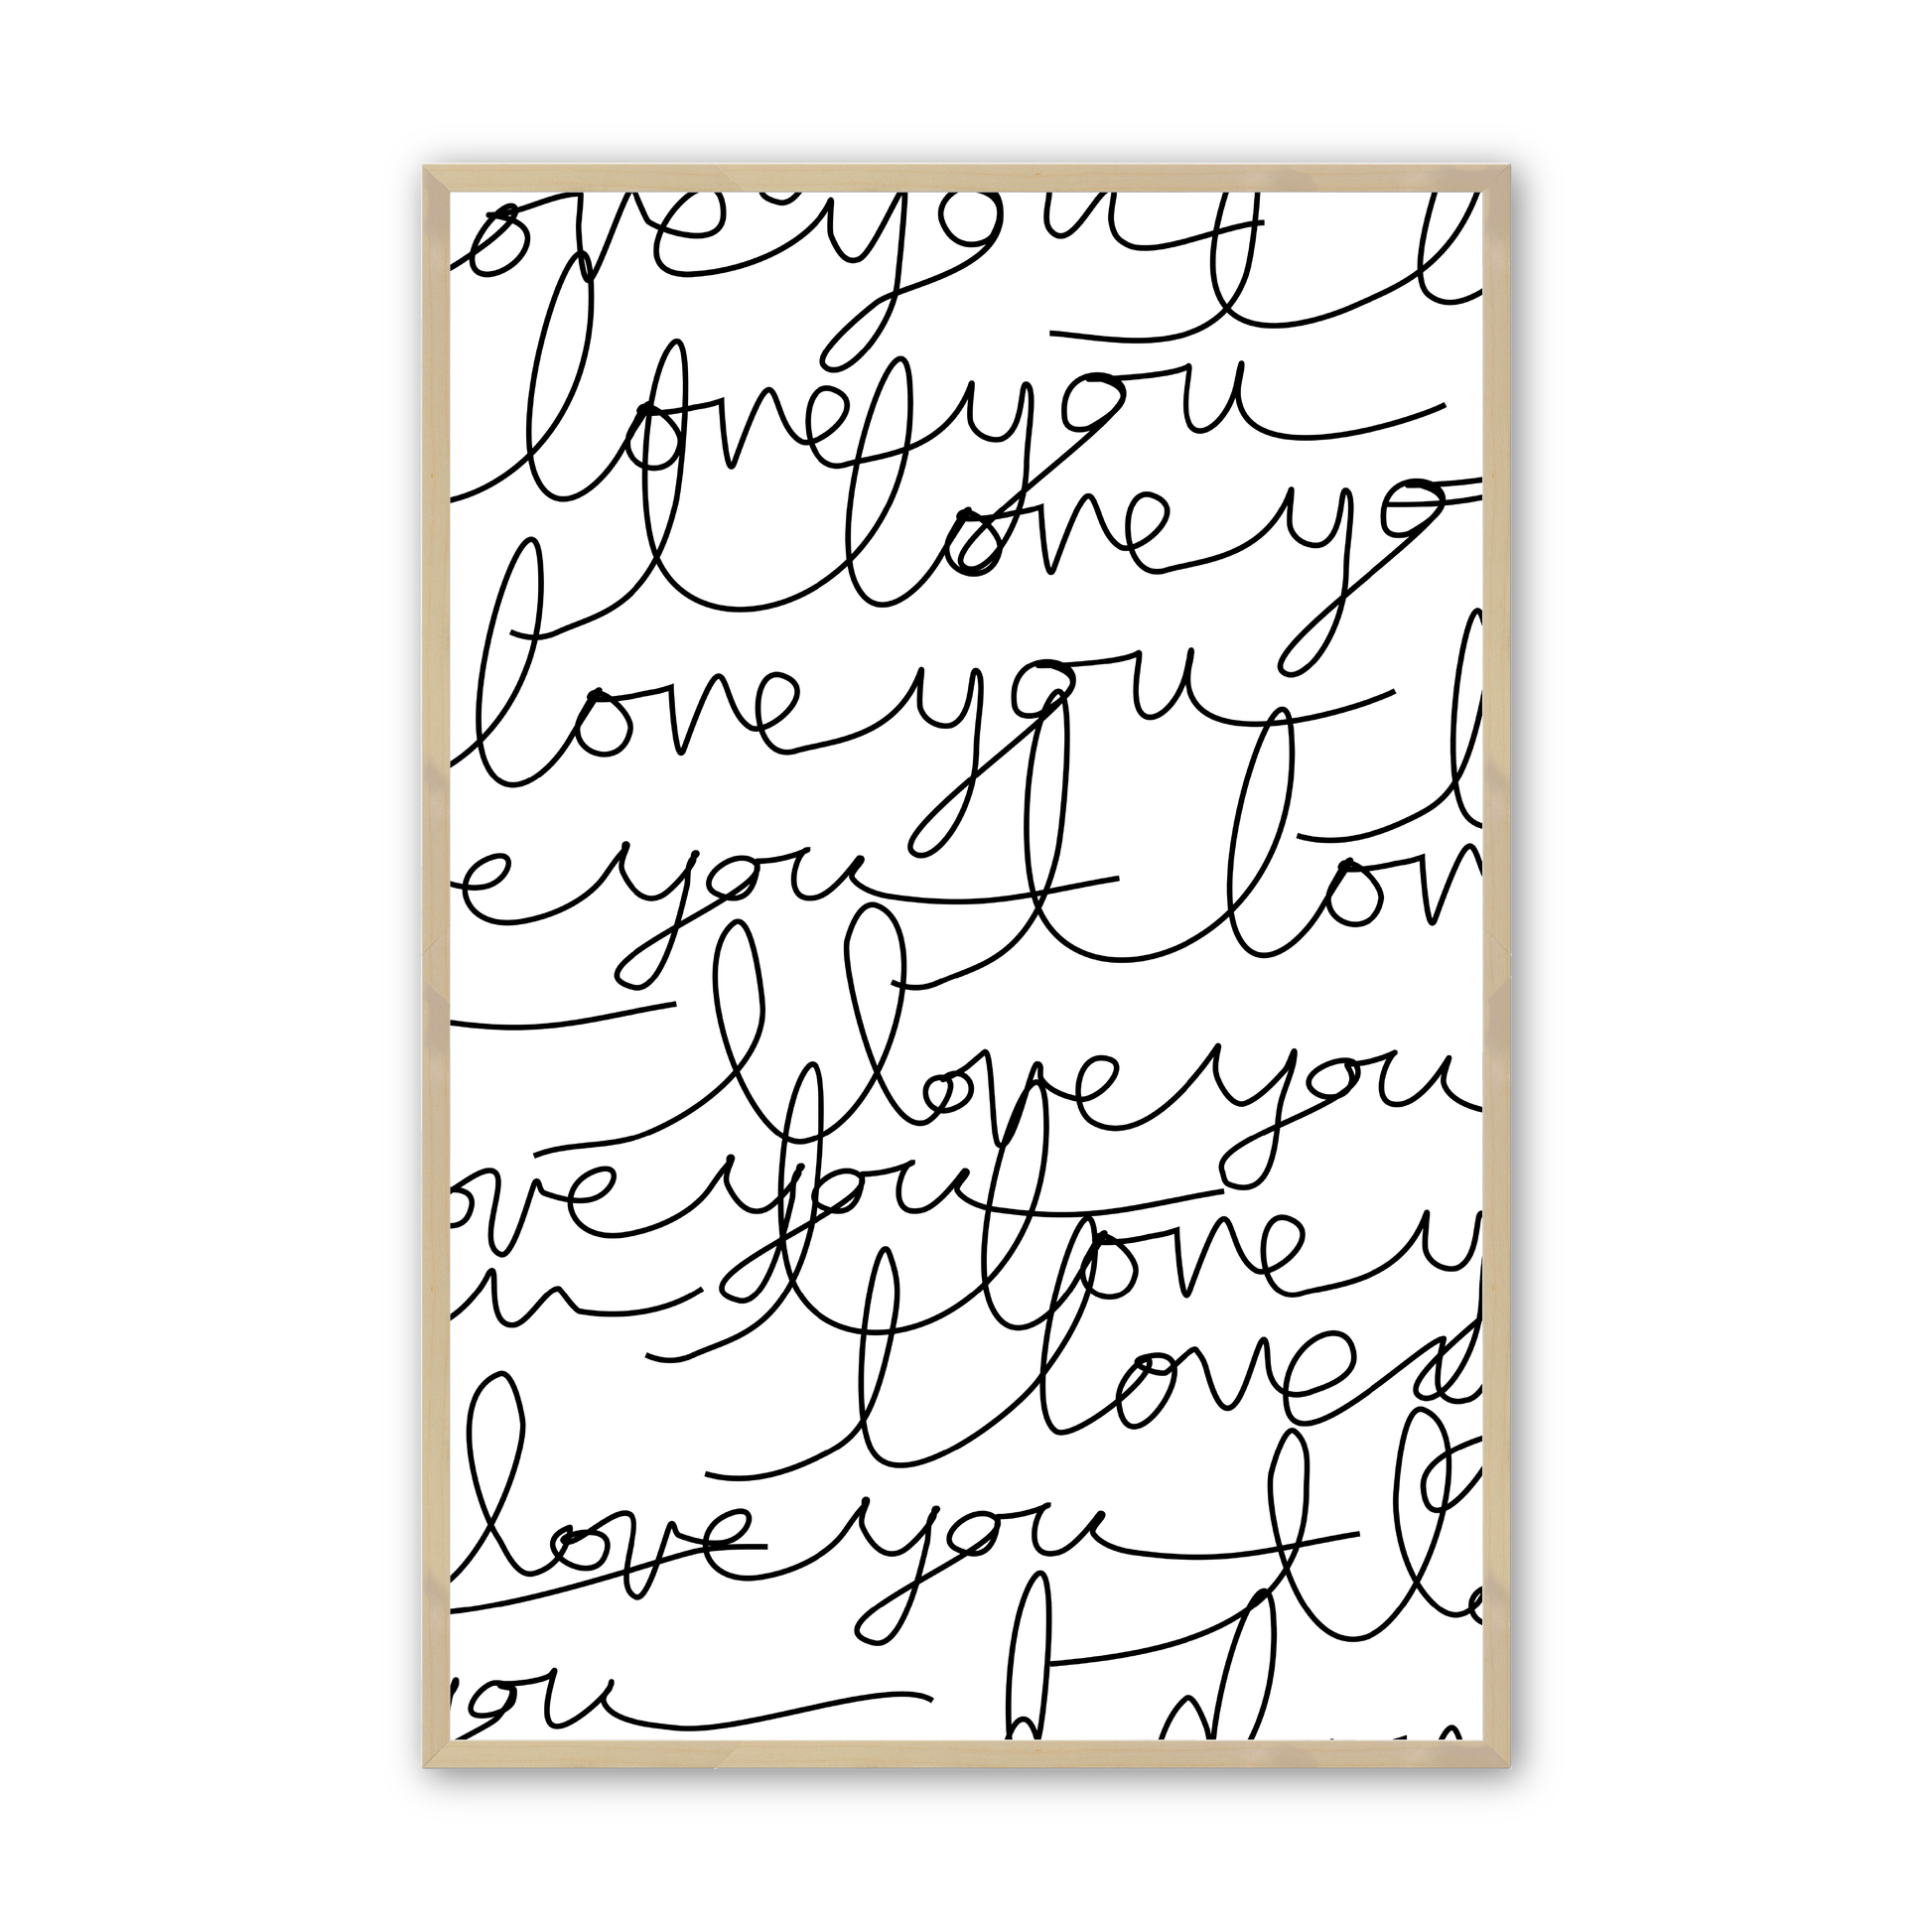 ove you I l
love you
I love yo
love you I
e you I lov
I love you
ove you I love y
u I love
love you I lo
you I